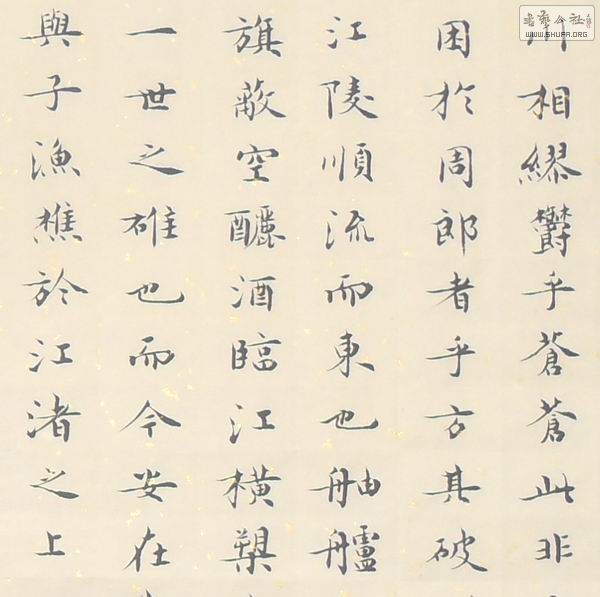 川相繆欝乎蒼蒼此非
困於周郎者乎方其破
江陵順流而東也舳艫
旗蔽空釃酒臨江橫槊
一世之雄也而今安在
與子漁樵於江渚之上
書藝公社
WWW.SHUFA.ORG